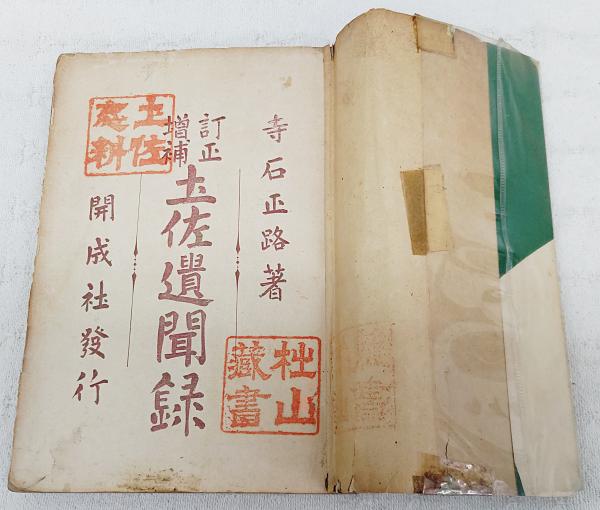 寺石正路著
訂正
增補
土佐遺聞録
開成社發行
土佐
料
山
藏書